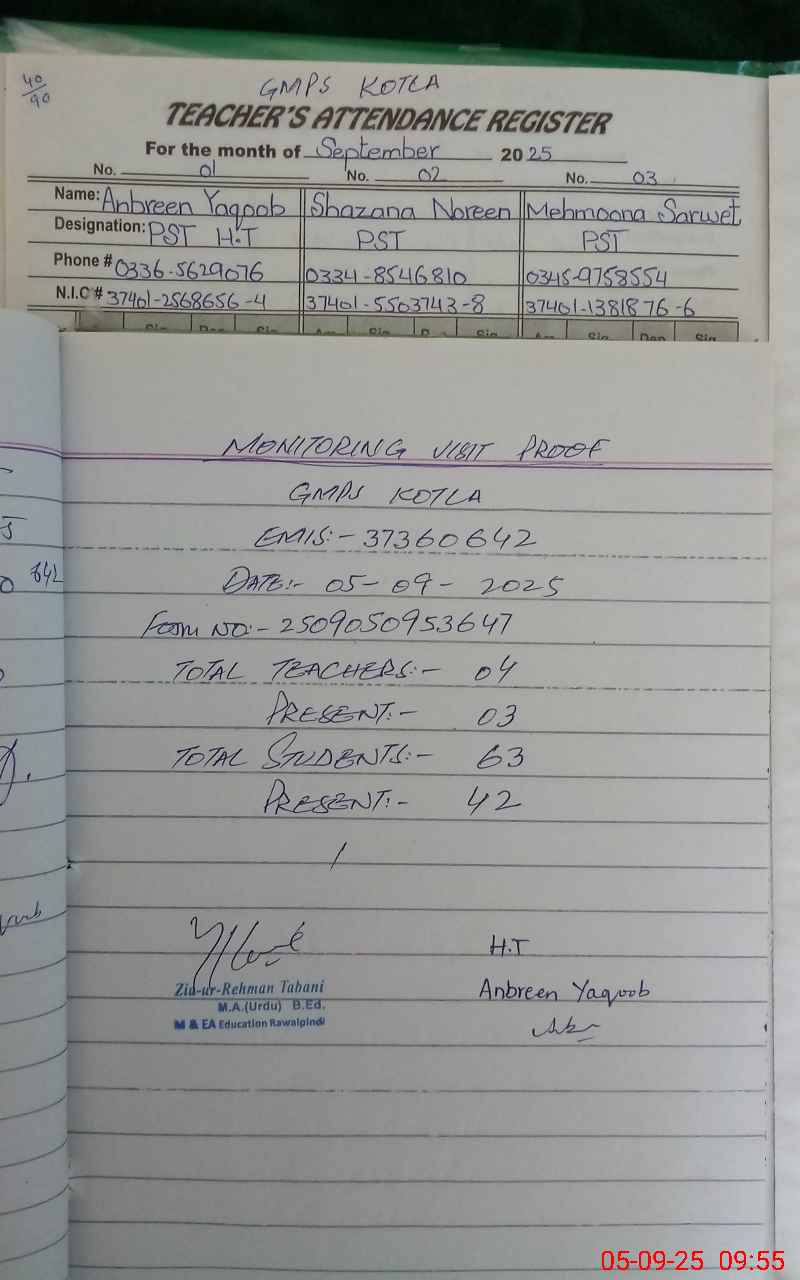 40/90
GMPS KOTLA
TEACHER'S ATTENDANCE REGISTER
For the month of September 2025
No. 01 No. 02 No. 03
Name: Anbreen Yaqoob Shazana Noreen Mehmoona Sarwet
Designation: PST H.T PST PST
Phone # 0336-5629076 0334-8546810 0345-9758554
N.I.C # 37401-2568656-4 37401-5503743-8 37401-1381876-6
Sig. Dep. Sig. Arr. Sig. D Sig. Arr. Sig. Dep. Sig.
MONITORING VISIT PROOF
GMPS KOTLA
EMIS:- 37360642
DATE:- 05-09-2025
Form NO:- 2509050953647
TOTAL TEACHERS:- 04
PRESENT:- 03
TOTAL STUDENTS:- 63
PRESENT:- 42
Zia-ur-Rehman Tabani
M.A.(Urdu) B.Ed.
M & EA Education Rawalpindi
H.T
Anbreen Yaqoob
05-09-25 09:55